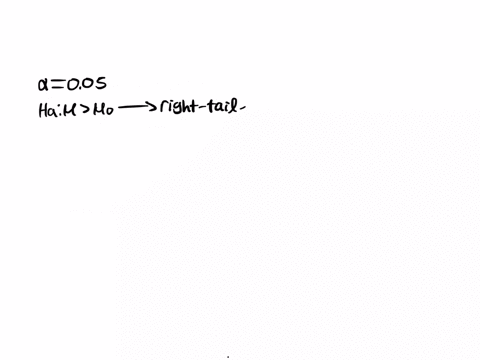 α=0.05
Ha:M>Mo→right-tail-